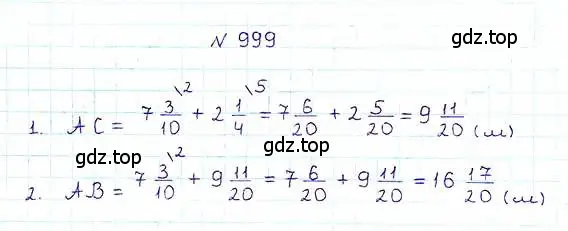 N 999
gdz.top
1. AC = 7 3/10 \2 + 2 1/4 \5 = 7 6/20 + 2 5/20 = 9 11/20 (м)
gdz.top
2. AB = 7 3/10 \2 + 9 11/20 = 7 6/20 + 9 11/20 = 16 17/20 (м)
gdz.top